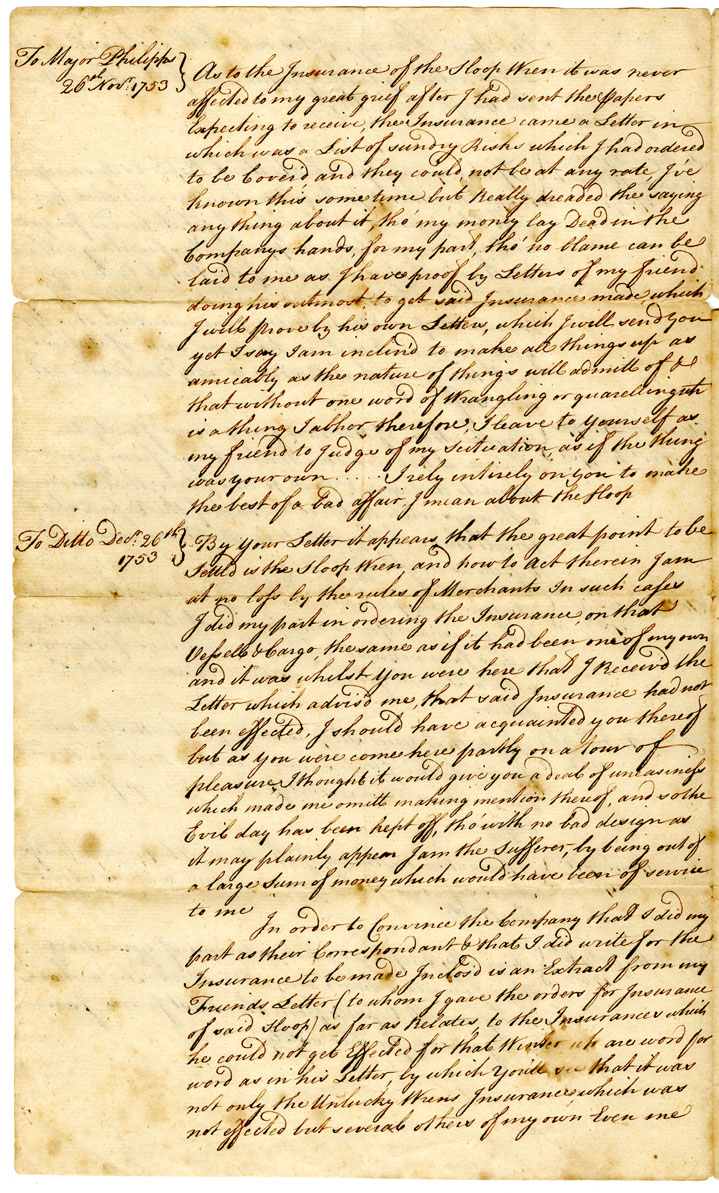 To Major Philipps
26th Novr. 1753
As to the Insurance of the Sloop Wren it was never
affected to my great grief after I had sent the Papers
Expecting to receive, the Insurance came a Letter in
which was a List of sundry Risks which I had ordered
to be Coverd and they could not be at any rate, I've
known this some time but Really dreaded the saying
any thing about it, tho' my money lay Dead in the
Companys hands, for my part, tho' no blame can be
laid to me as I have proof by Letters of my friend
doing his outmost to get said Insurance made which
I will prove by his own Letters, which I will send you
yet I say I am inclind to make all things up as
amicably as the nature of things will admitt of &
that without one word of Wrangling or quarelling wch
is a thing I abhor therefore, I leave to yourself as
my friend to Judge of my Scituation, as if the thing
was your own ..... I rely intirely on you to make
the best of a bad affair, I mean about the Sloop
To Ditto Decr. 26th
1753
By your Letter it appears, that the great point to be
Settld is the Sloop Wren, and how to act therein I am
at no loss by the rules of Merchants In such cases
I did my part in ordering the Insurance, on that
Vessell & Cargo, the same as if it had been one of my own
and it was whilst you were here that I Receivd the
Letter which advis'd me, that said Insurance had not
been effected, I should have acquainted you thereof
but as you were come here partly on a tour of
pleasure, I thought it would give you a deal of uneasiness
which made me omitt making mention thereof, and so the
Evil day has been kept off, tho' with no bad design as
it may plainly appear I am the Sufferer, by being out of
a large Sum of money which would have been of service
to me
In order to Convince the Company that I did my
part as their Correspondant & that I did write for the
Insurance to be made Inclosd is an Extract from my
Friends Letter (to whom I gave the orders for Insurance
of said Sloop) as far as Relates, to the Insurances which
he could not get Effected for that Winter wh are word for
word as in his Letter, by which You'll see that it was
not only the Unlucky Wrens Insurance which was
not effected but several others of my own Even me